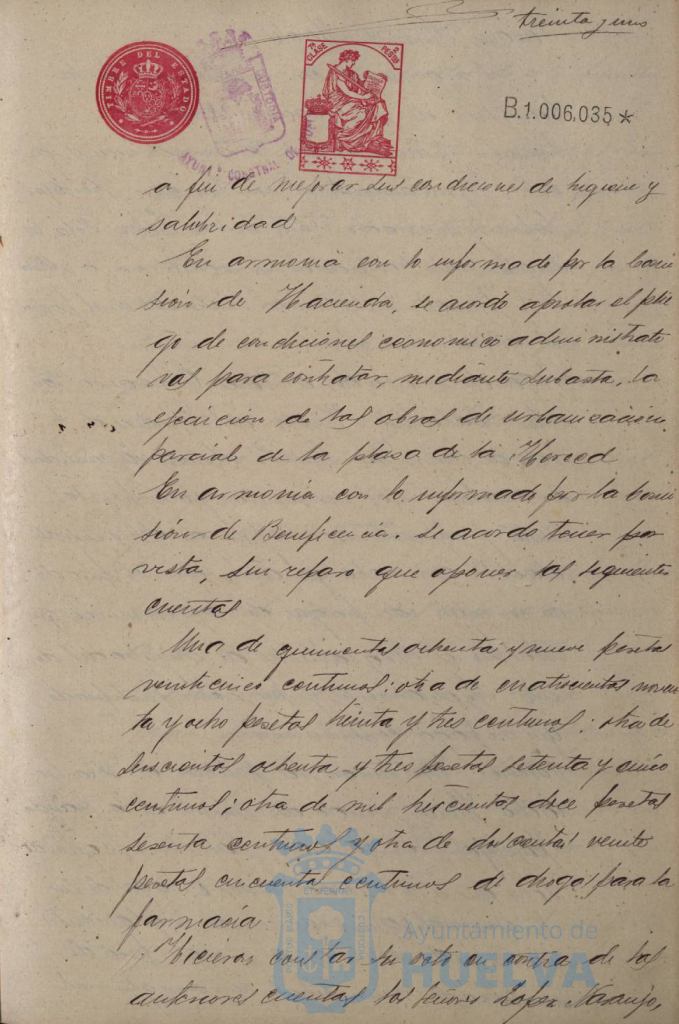 treinta y uno
TIMBRE DEL ESTADO
7ª CLASE
2 PESETAS
B.1.006,035*
a fin de mejorar sus condiciones de higiene y
salubridad
En armonia con lo informado por la comi
sión de Hacienda, se acordó aprobar el plie
go de condiciones economico administrati
vas para contratar, mediante subasta, la
ejecución de las obras de urbanización
parcial de la plaza de la Merced
En armonia con lo informado por la comi
sión de Beneficencia, se acordó tener por
vista, sin reparo que oponer las siguientes
cuentas
Una de quinientas ochenta y nueve pesetas
veinticinco centimos; otra de cuatrocientas noven
ta y ocho pesetas treinta y tres centimos; otra de
seiscientas ochenta y tres pesetas setenta y cinco
centimos; otra de mil trescientas doce pesetas
sesenta centimos y otra de doscientas veinte
pesetas cincuenta centimos de drogas para la
farmacia
Hicieron constar su voto en contra de las
anteriores cuentas los señores López Naranjo,
Ayuntamiento de
HUELVA